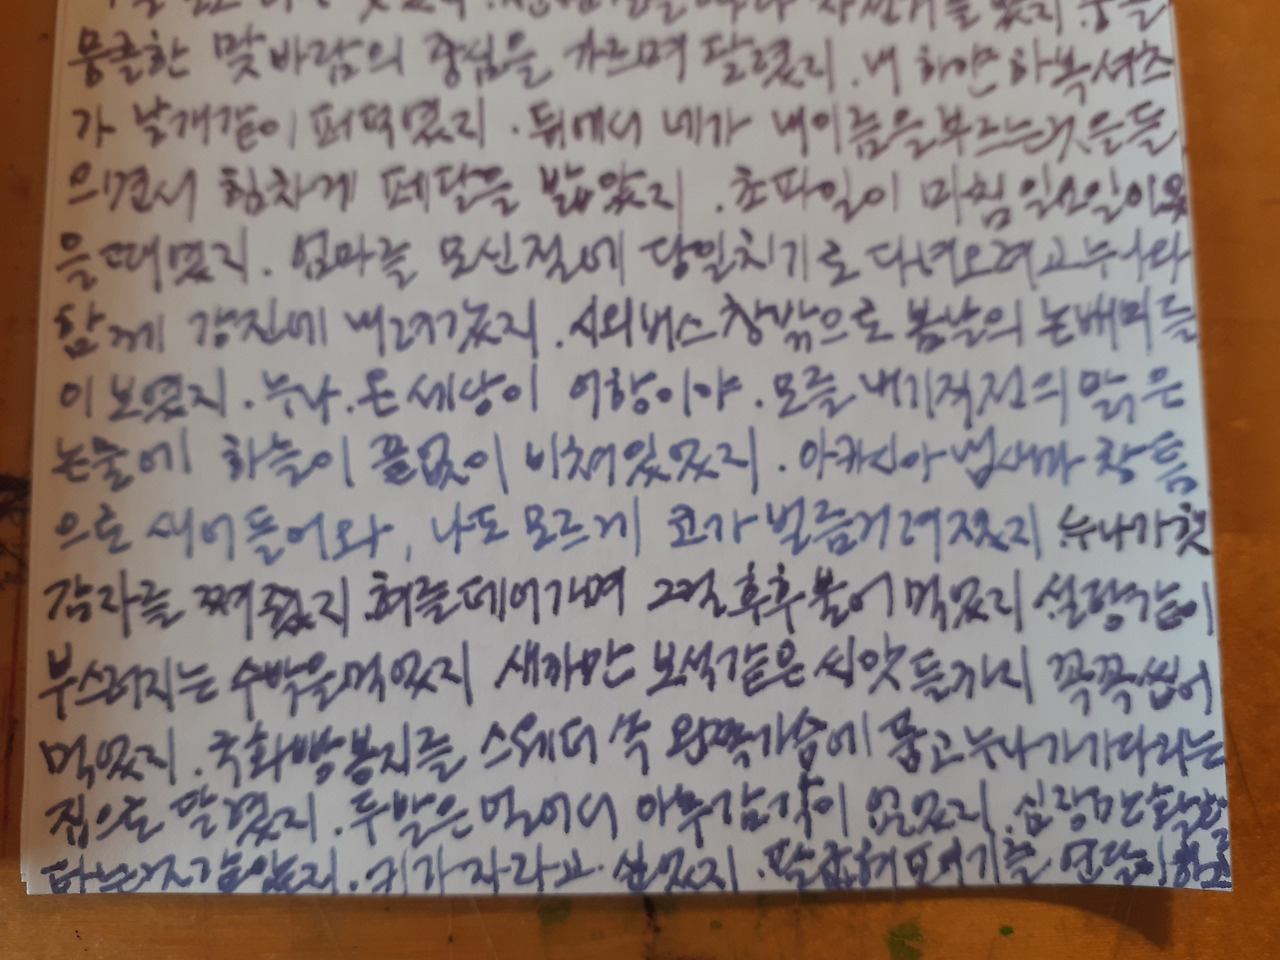 뭉클한 맞바람의 중심을 가르며 달렸지. 내 하얀 하복 셔츠
가 날개같이 퍼덕였지. 뒤에서 네가 내이름을부르는것을들
으면서 힘차게 페달을 밟았지. 초파일이 마침 일요일이었
을때였지. 엄마를 모신절에 당일치기로 다녀오려고누나와
함께 강진에 내려갔지. 시외버스 창밖으로 봄날의 논배미들
이 보였지. 누나. 온 세상이 어항이야. 모를 내기직전의 맑은
논물에 하늘이 끝없이 비쳐있었지. 아카시아 냄새가 창틈
으로 새어 들어와, 나도 모르게 코가 벌름거려졌지 누나가햇
감자를 쪄줬지 혀를데어가며 그걸 후후불어 먹었지 설탕같이
부스러지는 수박을먹었지 새까만 보석같은 씨앗들까지 꼭꼭씹어
먹었지. 국화빵봉지를 스웨터 속 왼쪽가슴에 품고누나가기다리는
집으로 달렸지. 두발은 얼어서 아무감각이 없었지. 심장만
타는것같았지. 키가 자라고 싶었지. 팔굽혀펴기를 연달아